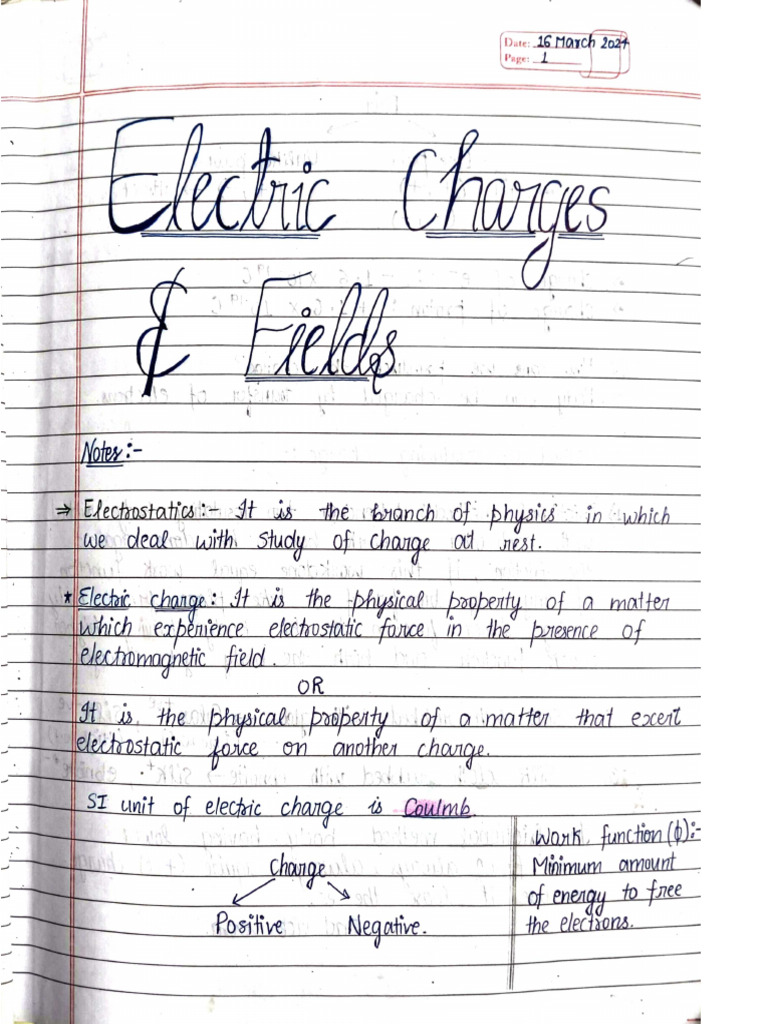 Date: 16 March 2024
Page: 1
Electric Charges
& Fields
Notes:-
⇒ Electrostatics:- It is the branch of physics in which
we deal with study of charge at rest.
* Electric charge: It is the physical property of a matter
which experience electrostatic force in the presence of
electromagnetic field.
OR
It is the physical property of a matter that excert
electrostatic force on another charge.
SI unit of electric charge is Coulmb.
Charge
Positive Negative.
Work function (ϕ):-
Minimum amount
of energy to free
the electrons.